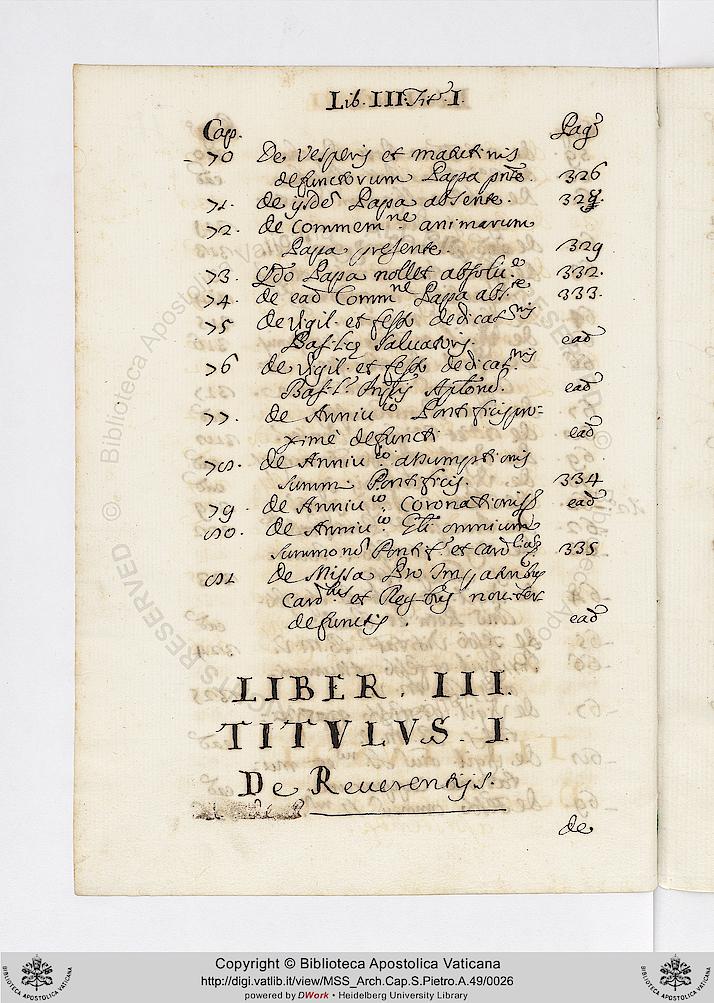 Lib. III. Tit. I.
Cap. Pag.
70 De Vesperis et matutinis
defunctorum Papa pnte. 326
71. de ijsde Papa absente. 328.
72. de commem.ne animarum
Papa presente. 329
73. Qdo Papa nollet absolu.e 332.
74. de ead Comm.ne Papa abs.te 333.
75 de Vigil. et festo dedicat.nis
Basilcę Saluatoris. ead
76 de Vigil. et festo dedicat.nis
Basil. Aplorū. ead
77. de Anniu.io Pontificis pro-
ximè defuncti ead
78. de Anniu.io assumptionis
summi Pontificis. 334
79. de Anniu.io Coronationis ead
80. de Anniu.io omnium
summorū Pontif. et card.lium 335
81 de Missa pro
card.bus et Regibus nouiter
defunctis. ead
LIBER. III.
TITVLVS. I.
De Reuerentijs.
de
Copyright © Biblioteca Apostolica Vaticana
http://digi.vatlib.it/view/MSS_Arch.Cap.S.Pietro.A.49/0026
powered by DWork • Heidelberg University Library